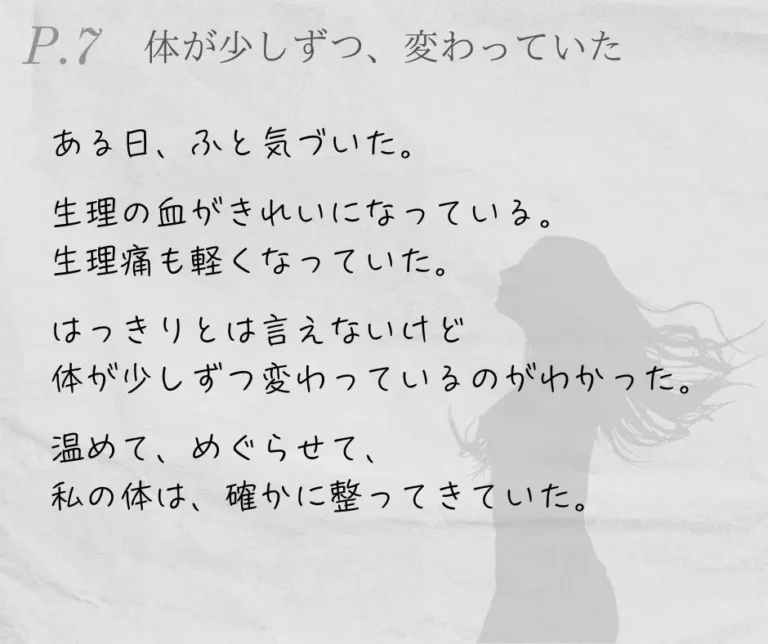 P.7 体が少しずつ、変わっていた
ある日、ふと気づいた。
生理の血がきれいになっている。
生理痛も軽くなっていた。
はっきりとは言えないけど
体が少しずつ変わっているのがわかった。
温めて、めぐらせて、
私の体は、確かに整ってきていた。